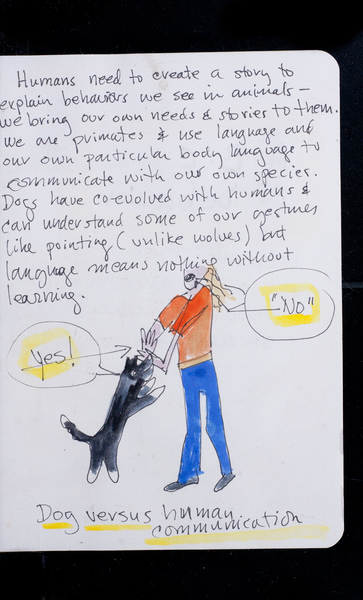 Humans need to create a story to
explain behaviors we see in animals -
we bring our own needs & stories to them.
We are primates & use language and
our own particular body language to
communicate with our own species.
Dogs have co-evolved with humans &
can understand some of our gestures
like pointing (unlike wolves) but
language means nothing without
learning.
"No"
Yes!
Dog versus human
communication